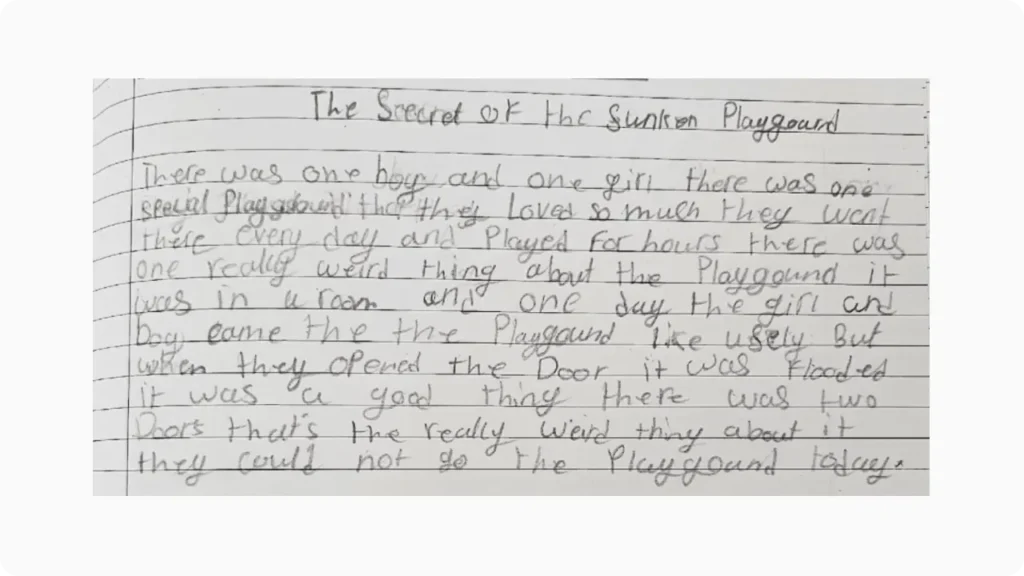 The Seecret of the Sunken Playgound
There was one boy and one girl there was one
special Playgound that they Loved so much they went
there every day and Played For hours there was
one really weird thing about the Playgound it
was in a room and one day the girl and
boy came the the Playgound like usely But
when they opened the Door it was Flooded
it was a good thing there was two
Doors that's the really weird thing about it
they could not go the Playgound today.